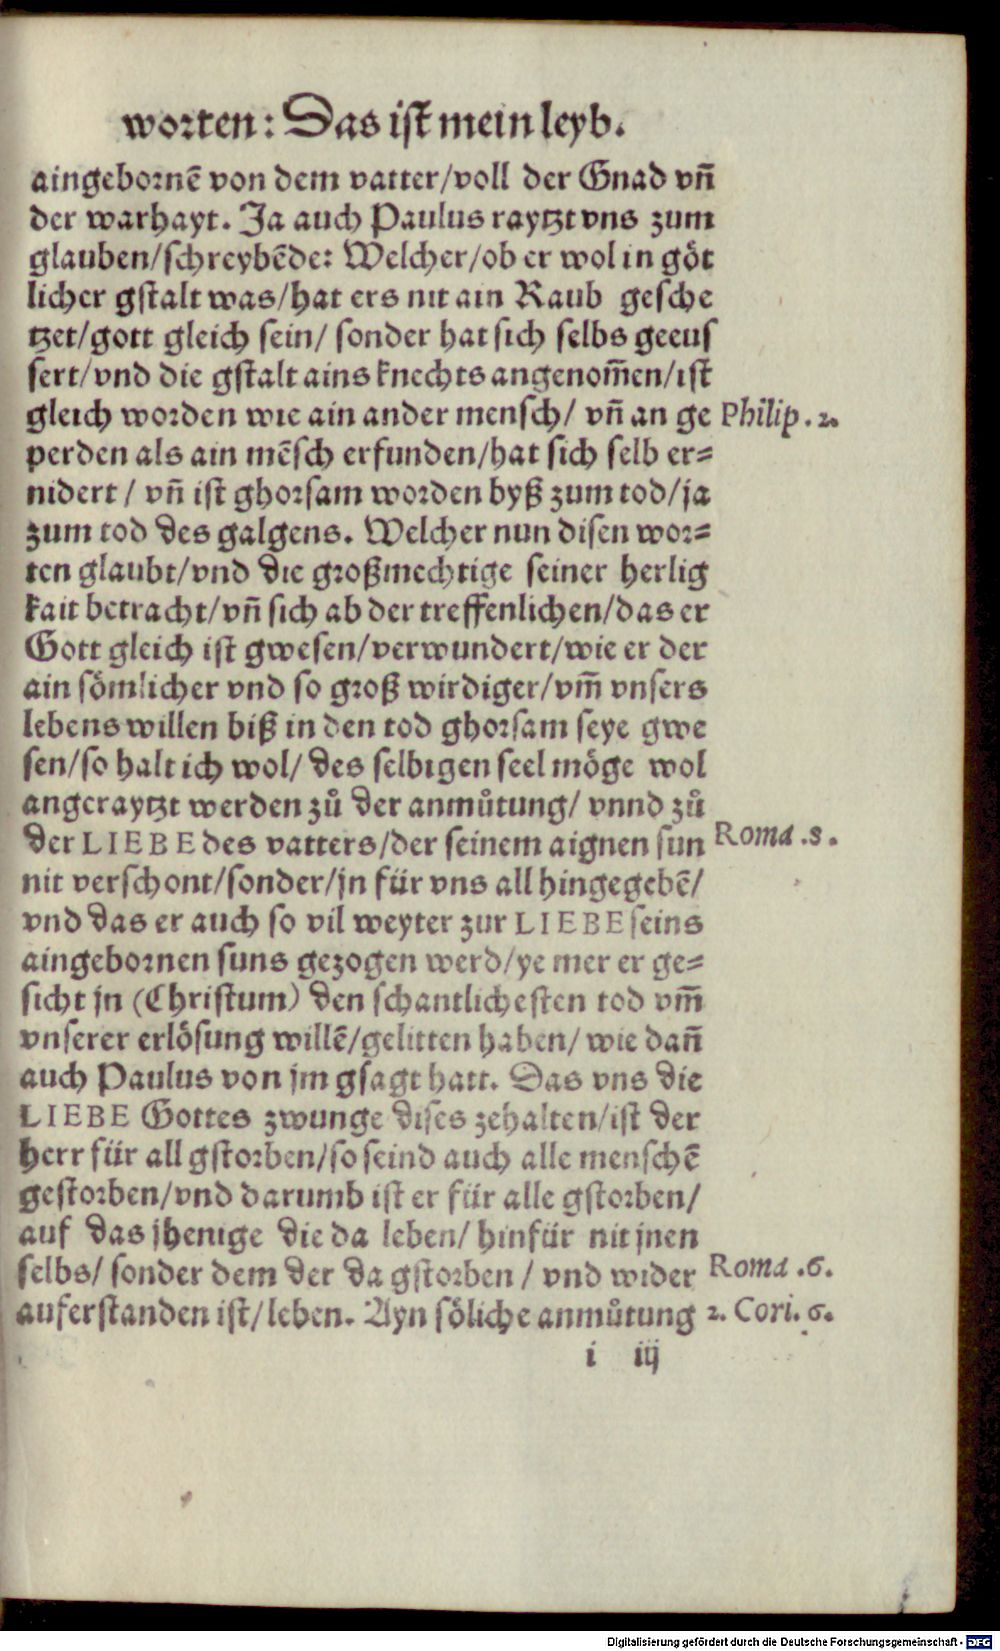 worten: Das ist mein leyb.
aingebornē von dem vatter/voll der Gnad vñ
der warhayt. Ja auch Paulus raytzt vns zum
glauben/schreybēde: Welcher/ob er wol in göt
licher gstalt was/hat ers nit ain Raub gesche
tzet/gott gleich sein/ sonder hat sich selbs geeus
sert/vnd die gstalt ains knechts angenom̄en/ist
gleich worden wie ain ander mensch/ vñ an ge Philip. 2.
perden als ain mēsch erfunden/hat sich selb er=
nidert / vñ ist ghorsam worden byß zum tod/ja
zum tod des galgens. Welcher nun disen wor=
ten glaubt/vnd die großmechtige seiner herlig
kait betracht/vñ sich ab der treffenlichen/das er
Gott gleich ist gwesen/verwundert/wie er der
ain sömlicher vnd so groß wirdiger/vm̄ vnsers
lebens willen biß in den tod ghorsam seye gwe
sen/so halt ich wol/ des selbigen seel möge wol
angeraytzt werden zů der anmůtung/ vnnd zů
der LIEBE des vatters/der seinem aignen sun Roma .8.
nit verschont/sonder/jn für vns all hingegebē/
vnd das er auch so vil weyter zur LIEBE seins
aingebornen suns gezogen werd/ye mer er ge=
sicht jn (Christum) den schantlichesten tod vm̄
vnserer erlösung willē/gelitten haben/ wie dañ
auch Paulus von jm gsagt hatt. Das vns die
LIEBE Gottes zwunge dises zehalten/ist der
herr für all gstorben/so seind auch alle menschē
gestorben/vnd darumb ist er für alle gstorben/
auf das jhenige die da leben/ hinfür nit jnen
selbs/ sonder dem der da gstorben / vnd wider Roma .6.
auferstanden ist/leben. Ayn söliche anmůtung 2. Cori. 6.
i iij
Digitalisierung gefördert durch die Deutsche Forschungsgemeinschaft - DFG